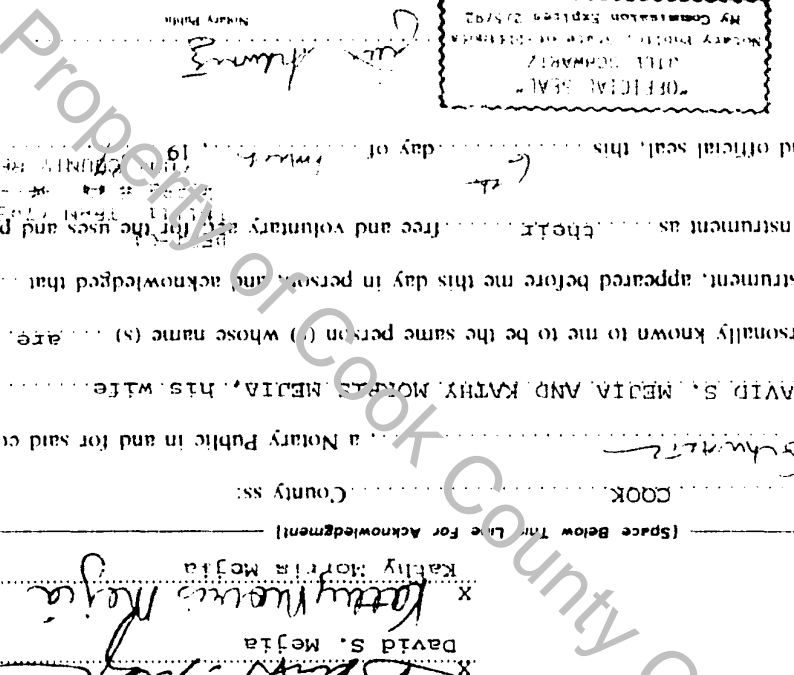 X
David S. Mejia
X Kathy Morris Mejia
Kathy Morris Mejia
(Space Below This Line For Acknowledgment)
COOK County ss:
Schwartz, a Notary Public in and for said co
AVID S. MEJIA AND KATHY MORRIS MEJIA, his wife
ersonally known to me to be the same person (s) whose name (s) are
strument, appeared before me this day in person, and acknowledged that
instrument as their free and voluntary act, for the uses and p
nd official seal, this 6th day of March, 19
"OFFICIAL SEAL"
JILL SCHWARTZ
Notary Public, State of Illinois
My Commission Expires 2/5/92
Jill Schwartz
Notary Public
Property of Cook County C